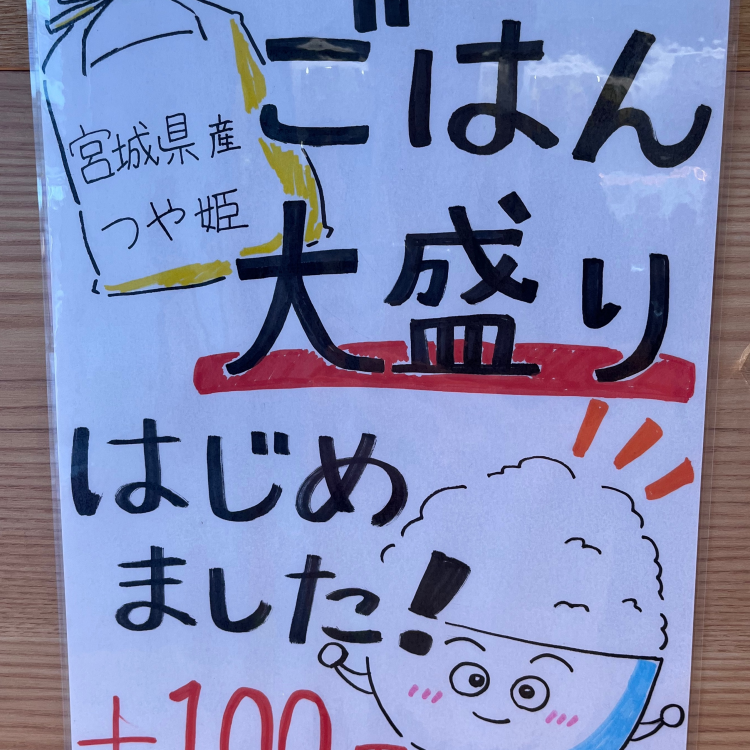 宮城県産
つや姫
ごはん
大盛り
はじめ
ました!
+100